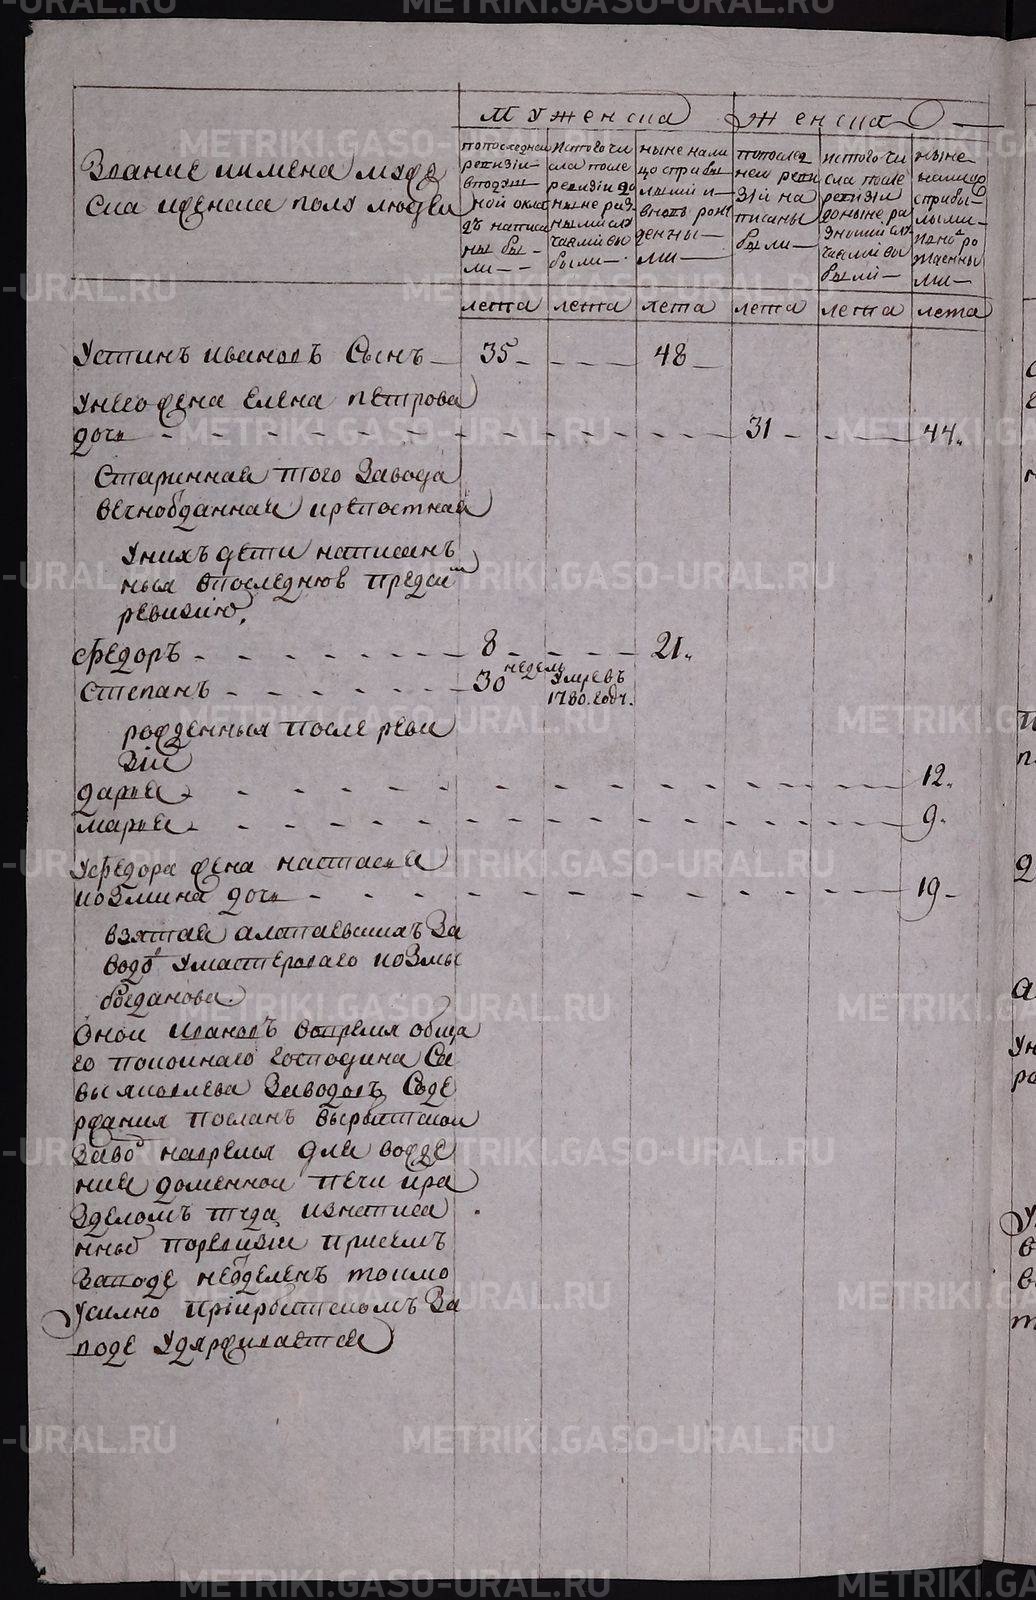 Мужеска
Женска
Звание иимена муже
ска иженска полу людей
попоследней
ревизiи
вподуш
ной окла
дъ написа
ны бы-
ли--
Истого чи
сла после
ревизiи до
ныне раз
ными слу
чаями вы
были-
ныне нали
цо справы
лыми и
вновь рож
денны-
ми-
попослед
ней реви
зiи на
писаны
были-
истого чи
сла после
ревизiи
доныне ра
зными слу
чаями вы
были-
ныне
налицо
справы-
лыми-
иново ро
жденны
ми-
лета лета лета лета лета лета
Устинъ Ивановъ Сынъ 35 48
Унего жена Елена Петрова
дочь 31 44.
Старинная того Завода
вечноотданная крепостная
Униъ дети написан
ныя впоследнюю пред сим
ревизию.
Федоръ 8 21.
Степанъ 30 недель Умревъ
1780. году.
рожденныя после реви
зiи
дарья 12.
марья 9.
Уфедора жена настасья
козмина дочь 19
взятая алапаевскихъ За
водовъ Умастероваго козмы
богданова.
Оной Ивановъ вовремя обща
го покойнаго господина Са
вы яковлева Заводовъ Соде
ржания посланъ вырбитской
Заво навремя для возде
ние доменной печи ира
зделомъ туда изнаписа
нные поревизiи присемъ
Заводе неотделенъ токмо
Усилно приирбитскомъ За
воде удярживается
METRIKI.GASO-URAL.RU